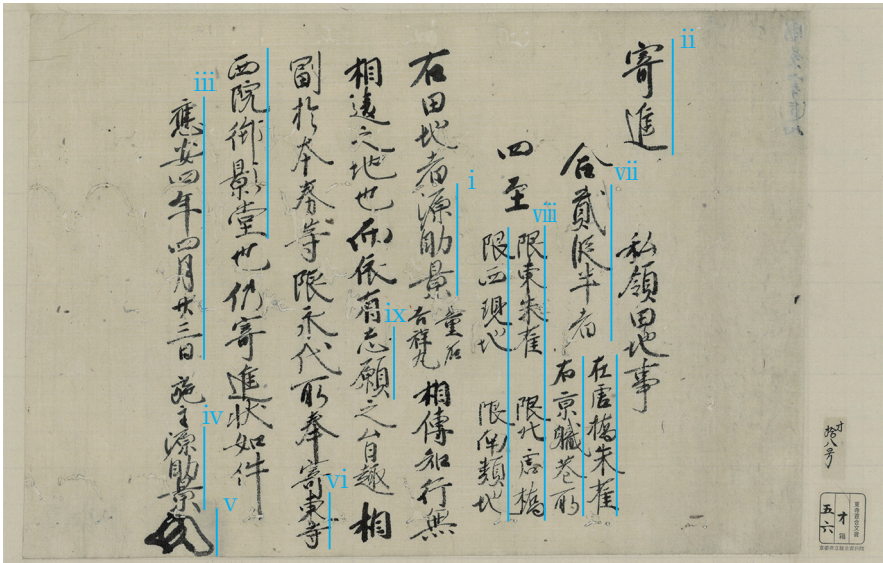 ii
寄進
私領田地事
vii
合貳段半者
在唐橋朱雀
右京職巷所
四至
viii
限東朱雀 限北唐橋
限西現地 限南類地
i
右田地者源助景
童名
吉祥丸
相傳知行無
ix
相違之地也而依有志願之旨趣相
vi
副於本券等限永代所奉寄東寺
西院御影堂也仍寄進状如件
iii
應安四年四月廿三日
iv
施主源助景
v
オ
拾八号
東寺百合文書
オ箱
五六